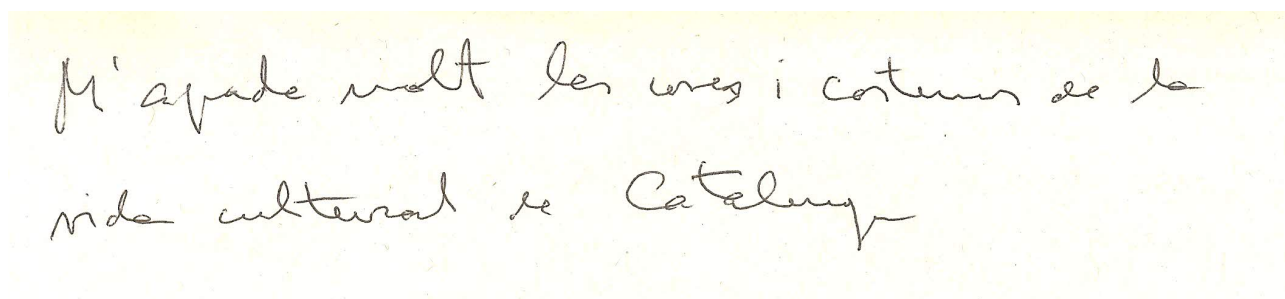 M'agrada molt les coses i costums de la
vida cultural de Catalunya